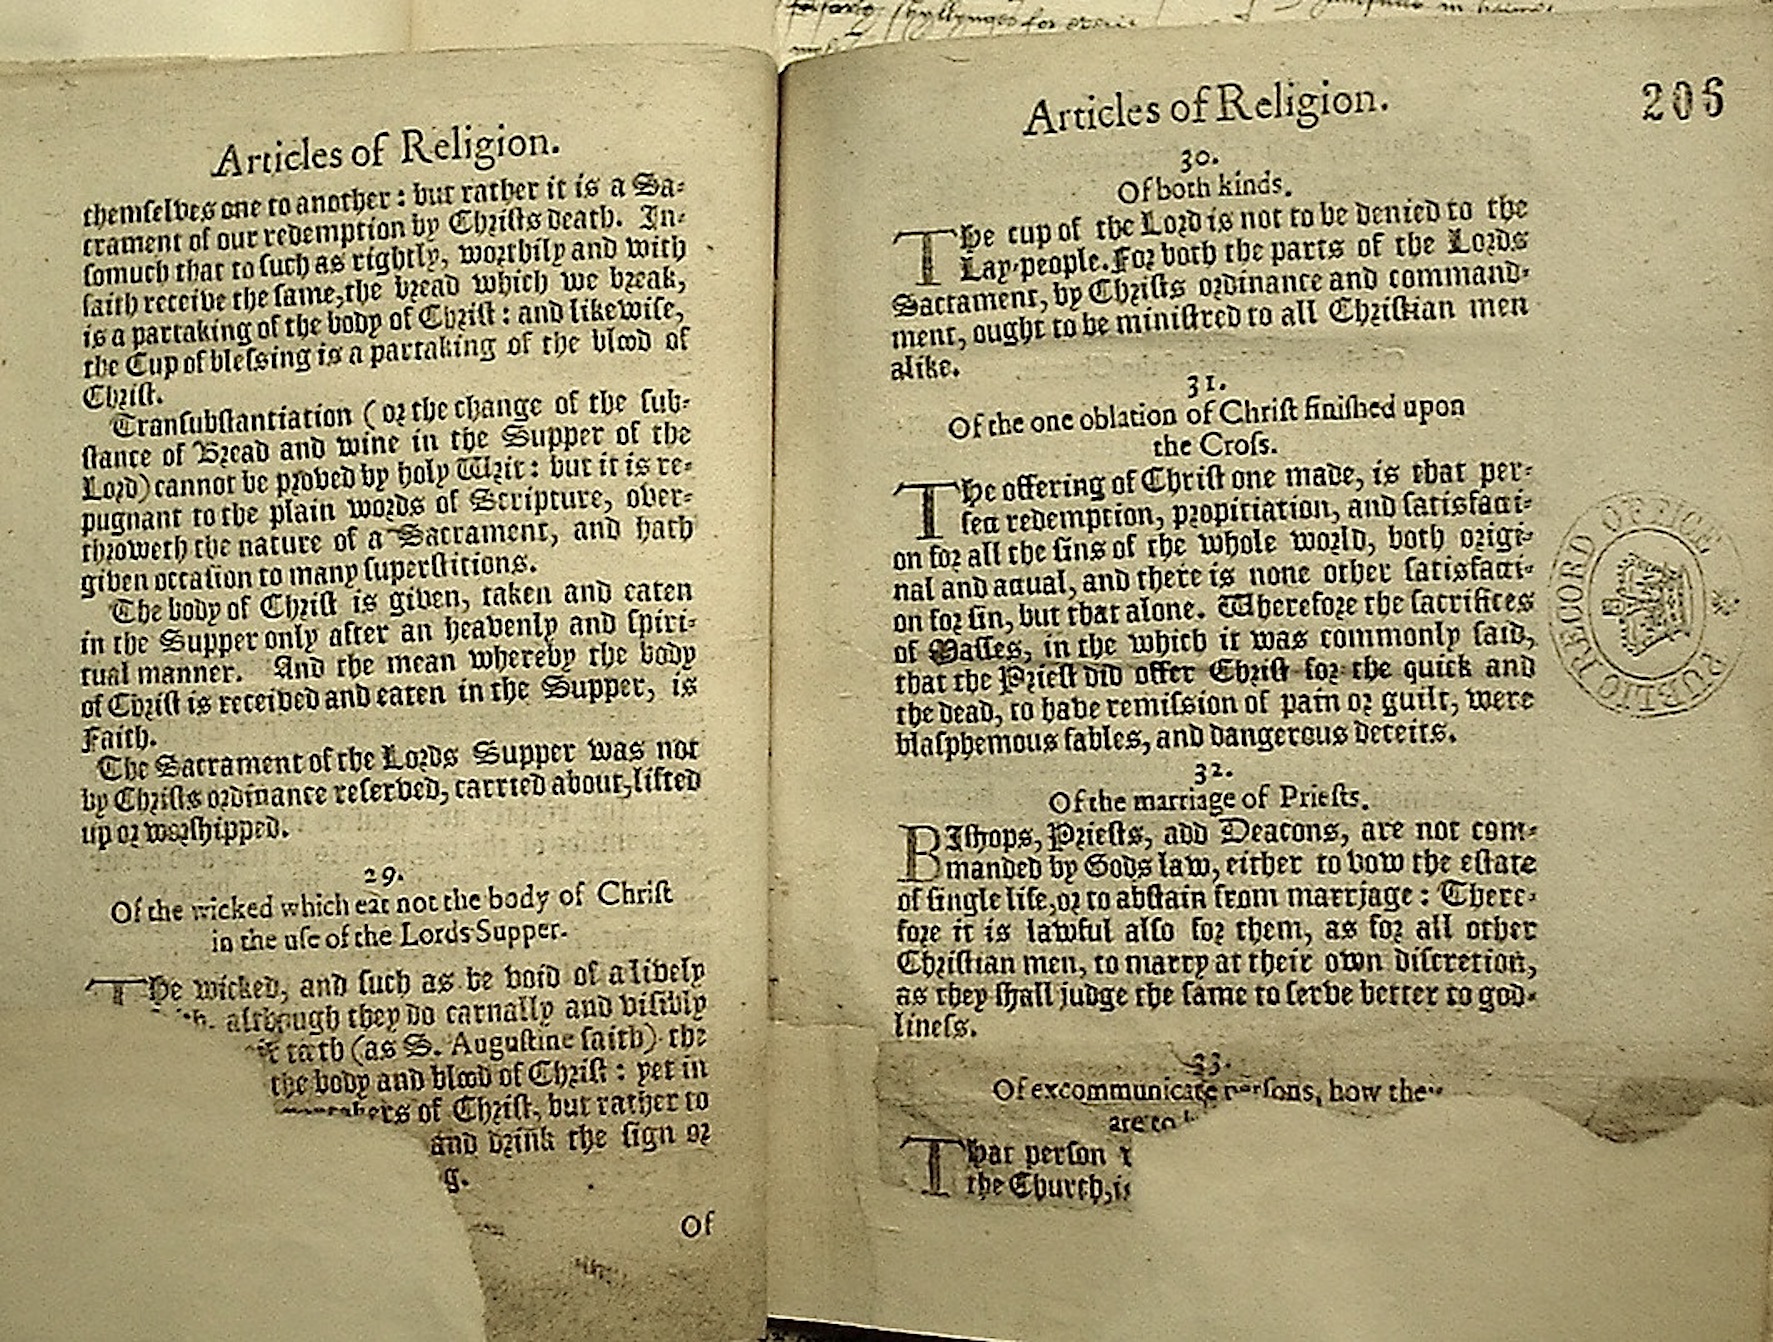 Articles of Religion.
themſelves one to another: but rather it is a Sa-
crament of our redemption by Chriſts death. In-
ſomuch that to ſuch as rightly, worthily and with
faith receive the ſame, the bread which we break,
is a partaking of the body of Chriſt: and likewiſe,
the Cup of bleſsing is a partaking of the blood of
Chriſt.
Tranſubſtantiation (or the change of the ſub-
ſtance of Bread and wine in the Supper of the
Lord) cannot be proved by holy Writ: but it is re-
pugnant to the plain words of Scripture, over-
throweth the nature of a Sacrament, and hath
given occaſion to many ſuperſtitions.
The body of Chriſt is given, taken and eaten
in the Supper only after an heavenly and ſpiri-
tual manner. And the mean whereby the body
of Chriſt is received and eaten in the Supper, is
Faith.
The Sacrament of the Lords Supper was not
by Chriſts ordinance reſerved, carried about, lifted
up or worſhipped.
29.
Of the wicked which eat not the body of Chriſt
in the uſe of the Lords Supper.
The wicked, and ſuch as be void of a lively
although they do carnally and viſibly
(as S. Auguſtine ſaith) the
the body and blood of Chriſt: yet in
of Chriſt, but rather to
and drink the ſign or
g.
Of
Articles of Religion.
206
30.
Of both kinds.
The cup of the Lord is not to be denied to the
Lay-people. For both the parts of the Lords
Sacrament, by Chriſts ordinance and command-
ment, ought to be miniſtred to all Chriſtian men
alike.
31.
Of the one oblation of Chriſt finiſhed upon
the Croſs.
The offering of Chriſt one made, is that per-
fect redemption, propitiation, and ſatisfacti-
on for all the ſins of the whole world, both origi-
nal and actual, and there is none other ſatisfacti-
on for ſin, but that alone. Wherefore the ſacrifices
of Maſſes, in the which it was commonly ſaid,
that the Prieſt did offer Chriſt for the quick and
the dead, to have remiſsion of pain or guilt, were
blaſphemous fables, and dangerous deceits.
32.
Of the marriage of Prieſts.
BIſhops, Prieſts, add Deacons, are not com-
manded by Gods law, either to vow the eſtate
of ſingle life, or to abſtain from marrjage: There-
fore it is lawful alſo for them, as for all other
Chriſtian men, to marry at their own diſcretion,
as they ſhall judge the ſame to ſerve better to god-
lineſs.
33.
Of excommunicate perſons, how they
are to
That perſon
the Church, is
PUBLIC RECORD OFFICE